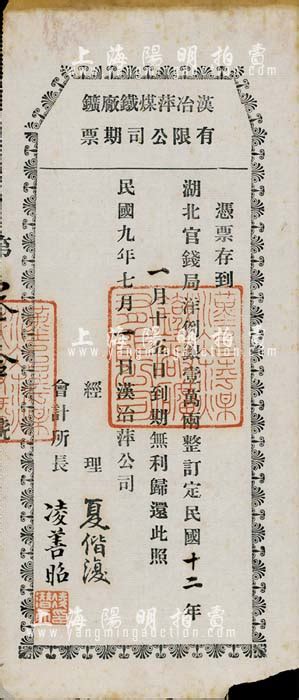 上海陽明拍賣
漢冶萍煤鐵廠鑛
有限公司期票
憑票存到
湖北官錢局洋例銀壹萬兩整訂定民國十二年
一月十五日到期無利歸還此照
民國九年七月一日漢冶萍公司
經理 夏偕復
會計所長 凌善昭
第
號
上海陽明拍賣
www.yangmingauction.com